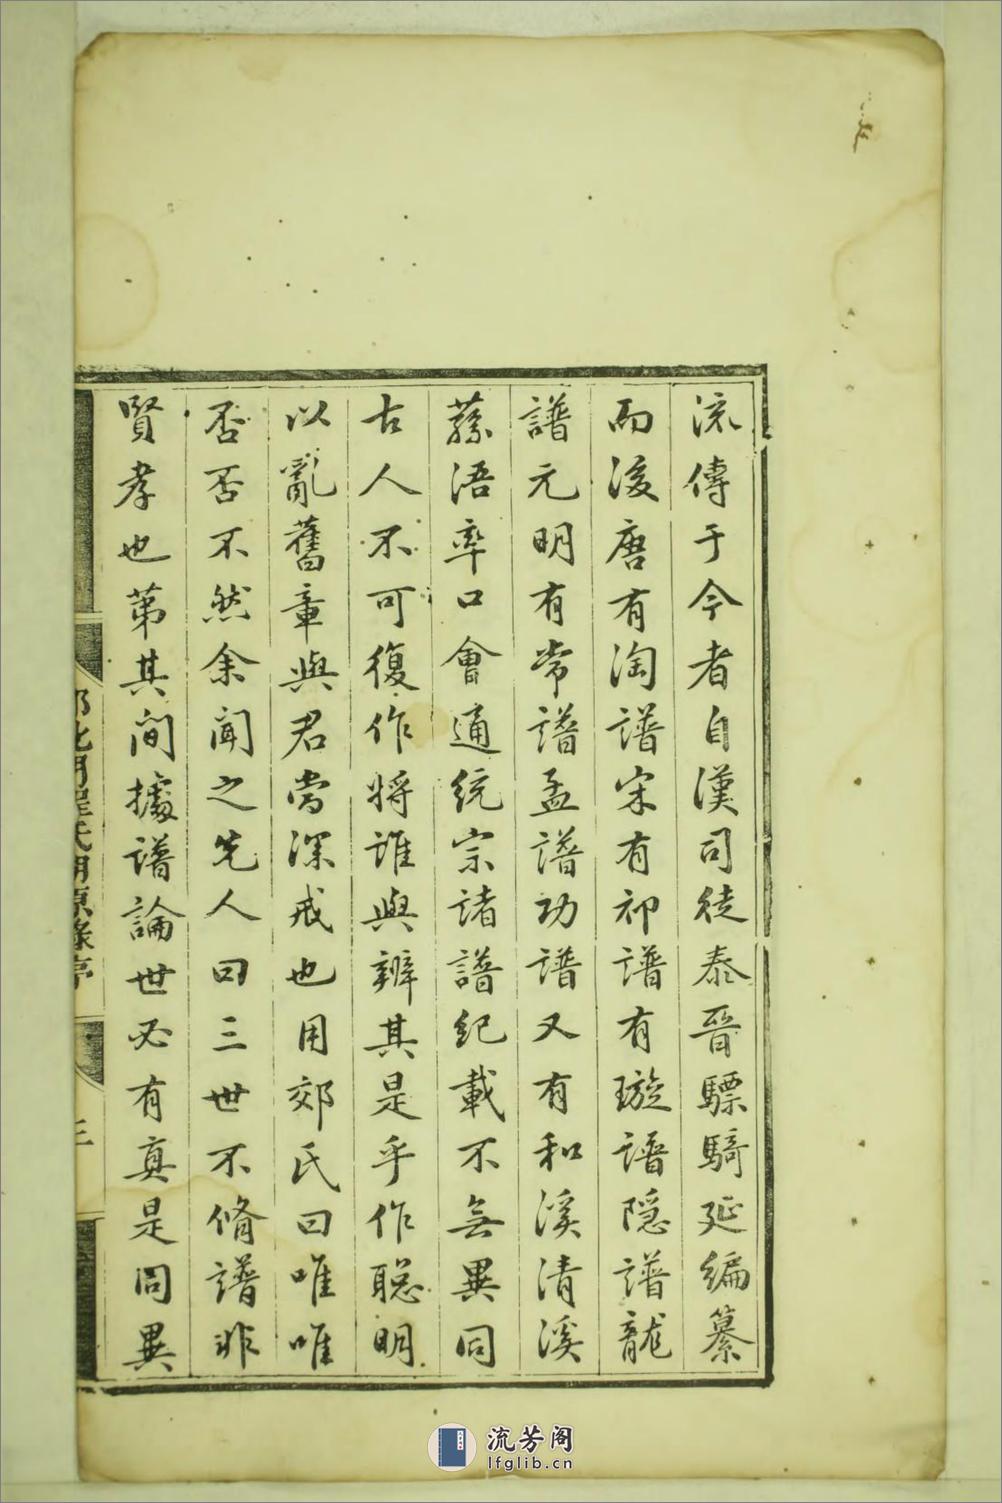 流傳于今者自漢司徒泰晉驃騎延編纂
而後唐有淘譜宋有祁譜有璇譜隐譜龍
譜元明有常譜孟譜功譜又有和溪清溪
蓀浯率口會通統宗諸譜紀載不無異同
古人不可復作將誰與辨其是乎作聰明
以亂舊章與君當深戒也用郊氏曰唯唯
否否不然余聞之先人曰三世不脩譜非
賢孝也第其間據譜論世必有真是同異
北門程氏朔原錄序
三
流芳阁
lfglib.cn